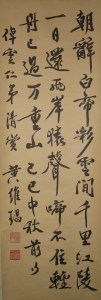 朝辭白帝彩雲間千里江陵
一日還兩岸猿聲啼不住輕
舟已過萬重山 己巳中秋前
雲仁弟清賞 黃維